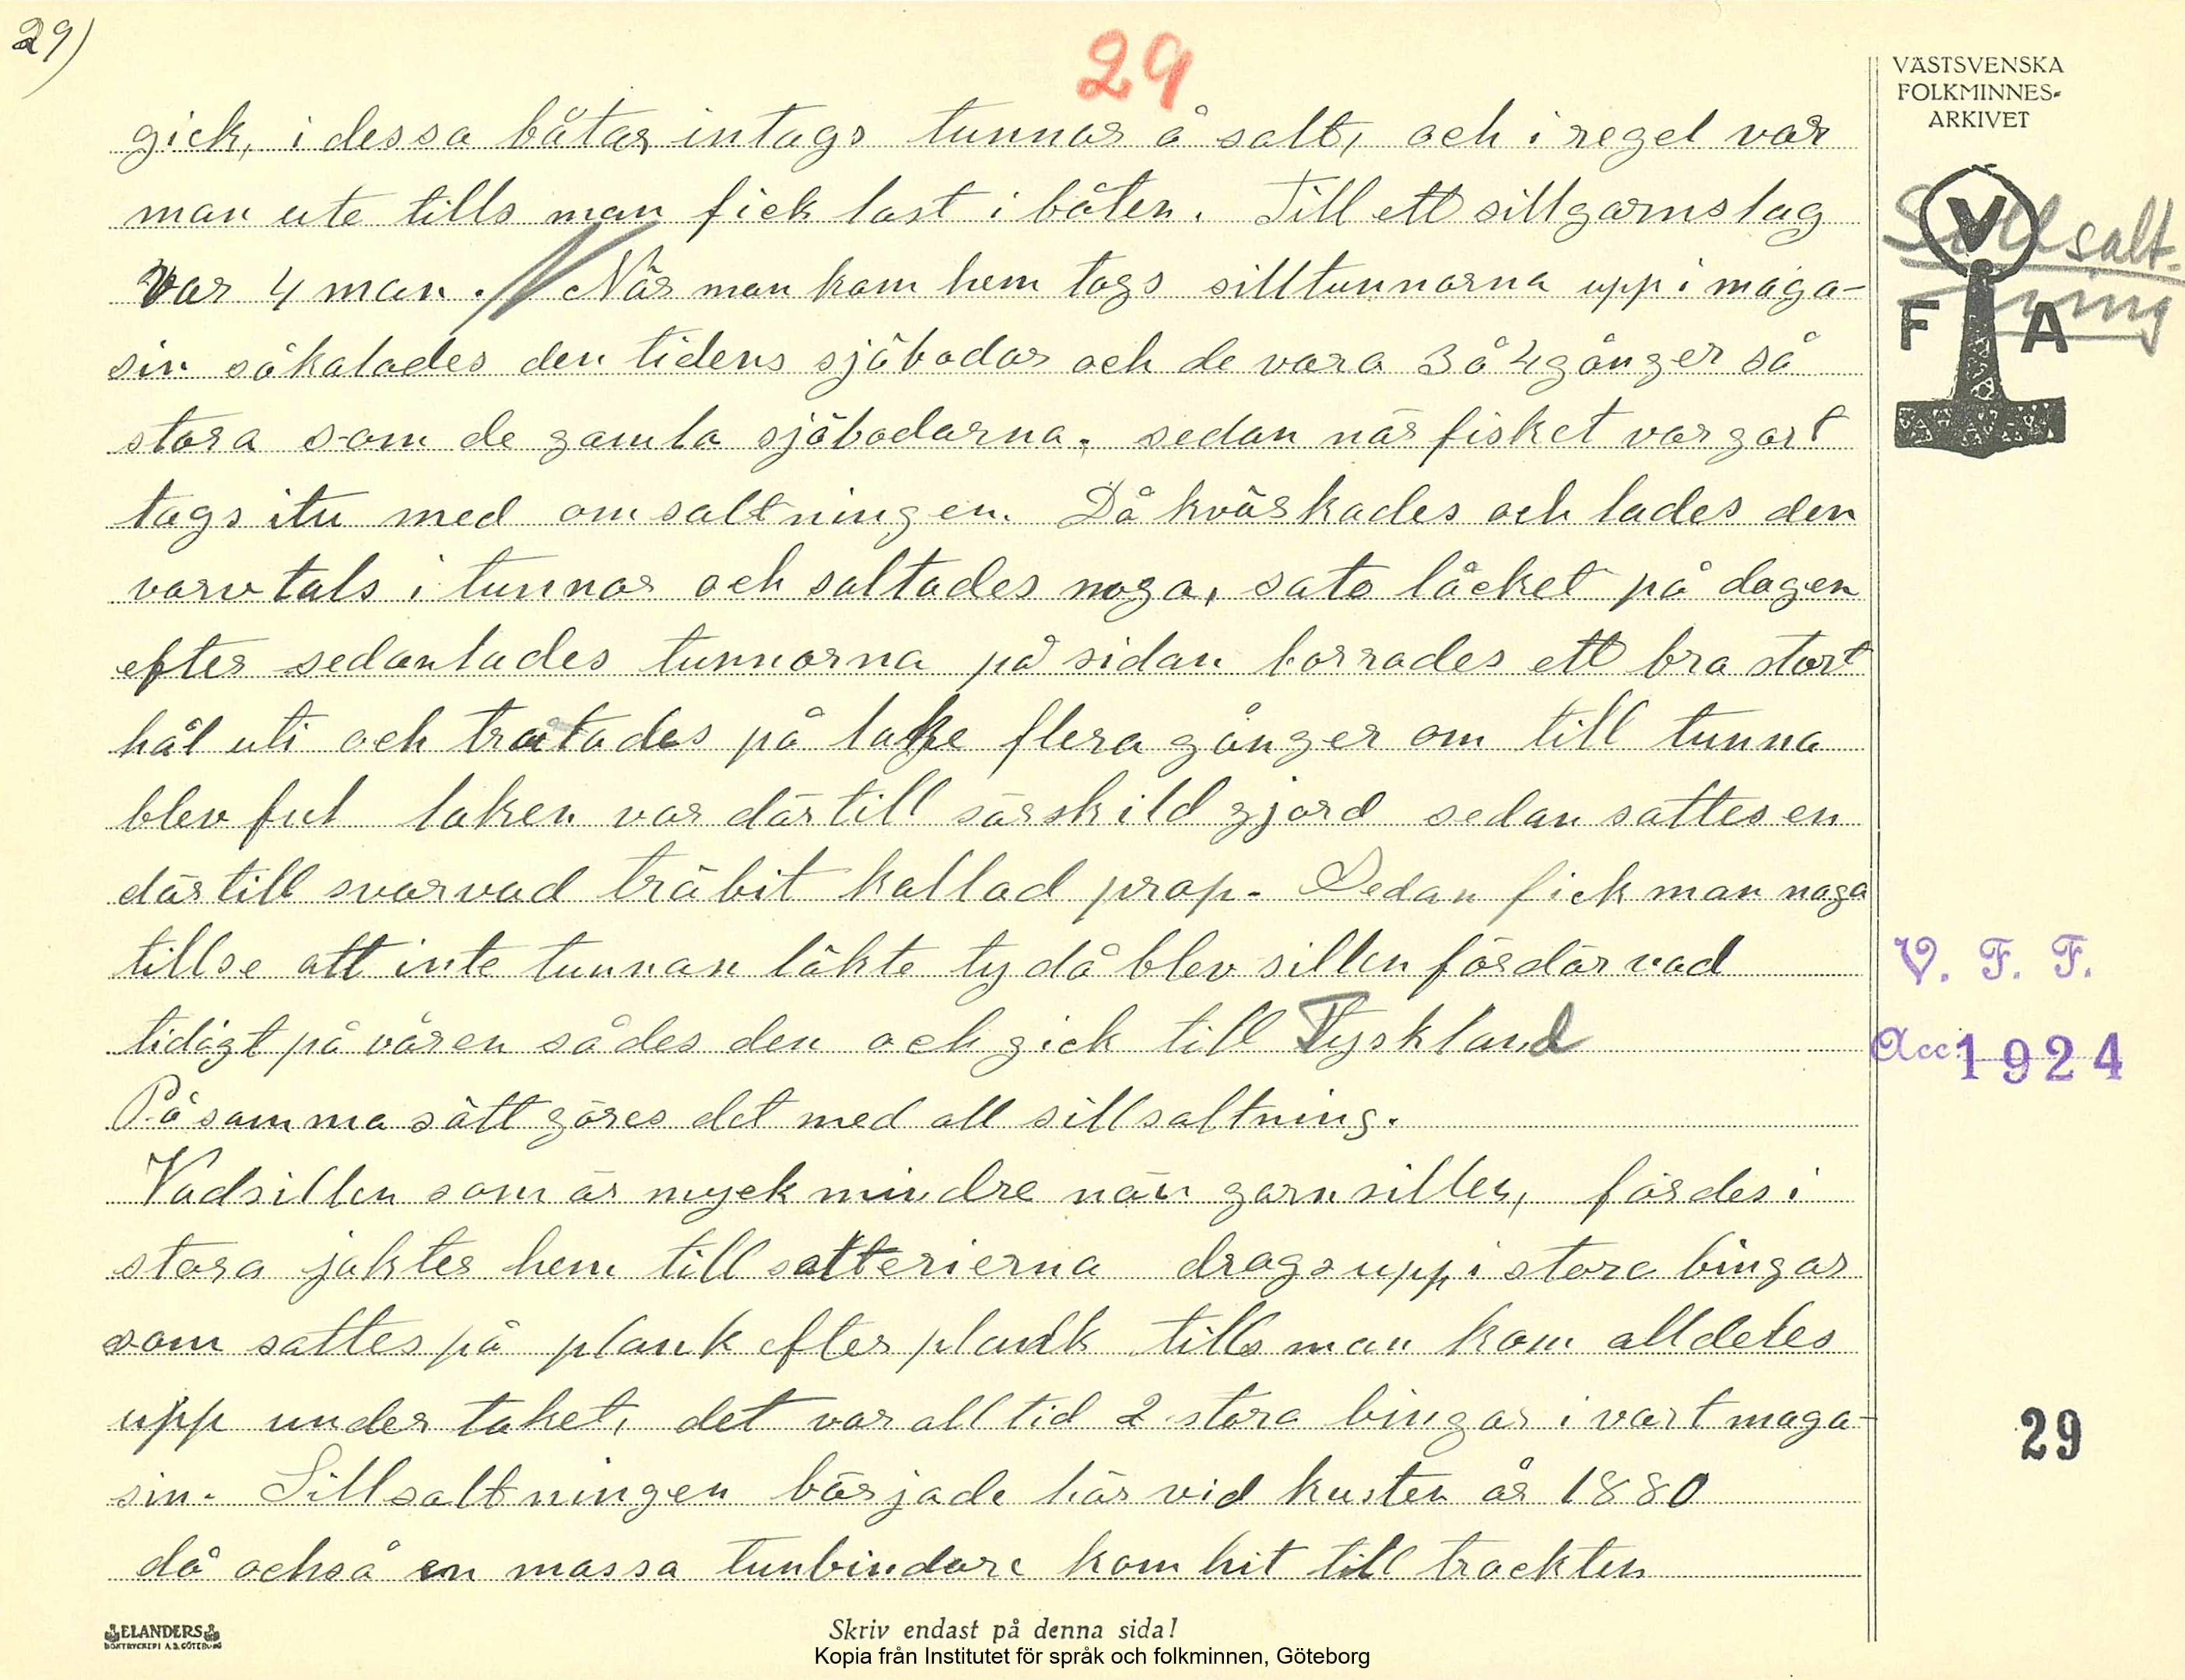 29)
29
VÄSTSVENSKA
FOLKMINNES-
ARKIVET
gick, i dessa båtar intags tunnor å salt, och i regel var
man ute tills man fick last i båten. Till ett sillgarnslag
var 4 man. När man kom hem togs silltunnorna upp i maga-
sin såkalades den tidens sjöbodar och de vara 3 å 4 gånger så
stora som de gamla sjöbodarna. sedan när fisket var gort
togs itu med omsaltningen. Då kväskades och lades den
varvtals i tunnor och saltades noga, sats låcket på dagen
efter sedanlades tunnorna på sidan borrades ett bra stort
hål uti och tratades på lake flera gånger om till tunna
blev ful laken var där till särskild gjord sedan sattes en
där till svarvad träbit kallad prop. Sedan fick man noga
tillse att inte tunnan läkte ty då blev sillen fördärvad
tidigt på våren såldes den och gick till Tyskland
På samma sätt göres det med all sillsaltning.
Vadsillen som är myck mindre nän garnsillen, fördes i
stora jakter hem till salterierna drogs upp i stora bingar
som sattes på plank efter plank tills man kom alldeles
upp under taket, det var alltid 2 stora bingar i vart maga-
sin. Sillsaltningen började här vid kusten år 1880
då också en massa tunbindare kom hit till trackten
Sillsalt-
ning
V
F A
V. F. F.
Acc: 1924
29
ELANDERS
BOKTRYCKERI A.B. GÖTEBORG
Skriv endast på denna sida!
Kopia från Institutet för språk och folkminnen, Göteborg